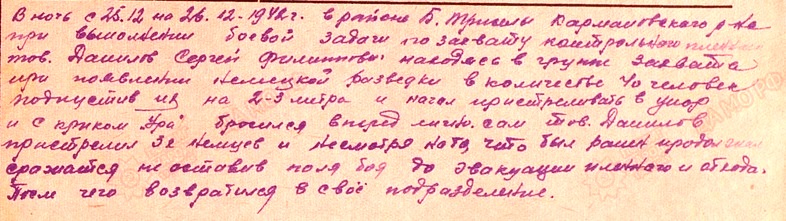 В ночь с 25.12 на 26.12-1942г. в районе Б. Триселы Кармановского р-на
при выполнении боевой задачи по захвату контрольного пленного
тов. Данилов Сергей Филиппович находясь в группе захвата
при появлении немецкой разведки в количестве 40 человек
подпустив их на 2-3 метра и начал пристреливать в упор
и с криком "Ура" бросился вперед лично сам тов. Данилов
пристрелил 3х немцев и несмотря на то, что был ранен продолжал
сражатся не оставив поля боя до эвакуации пленного и отхода.
После чего возвратился в своё подразделение.